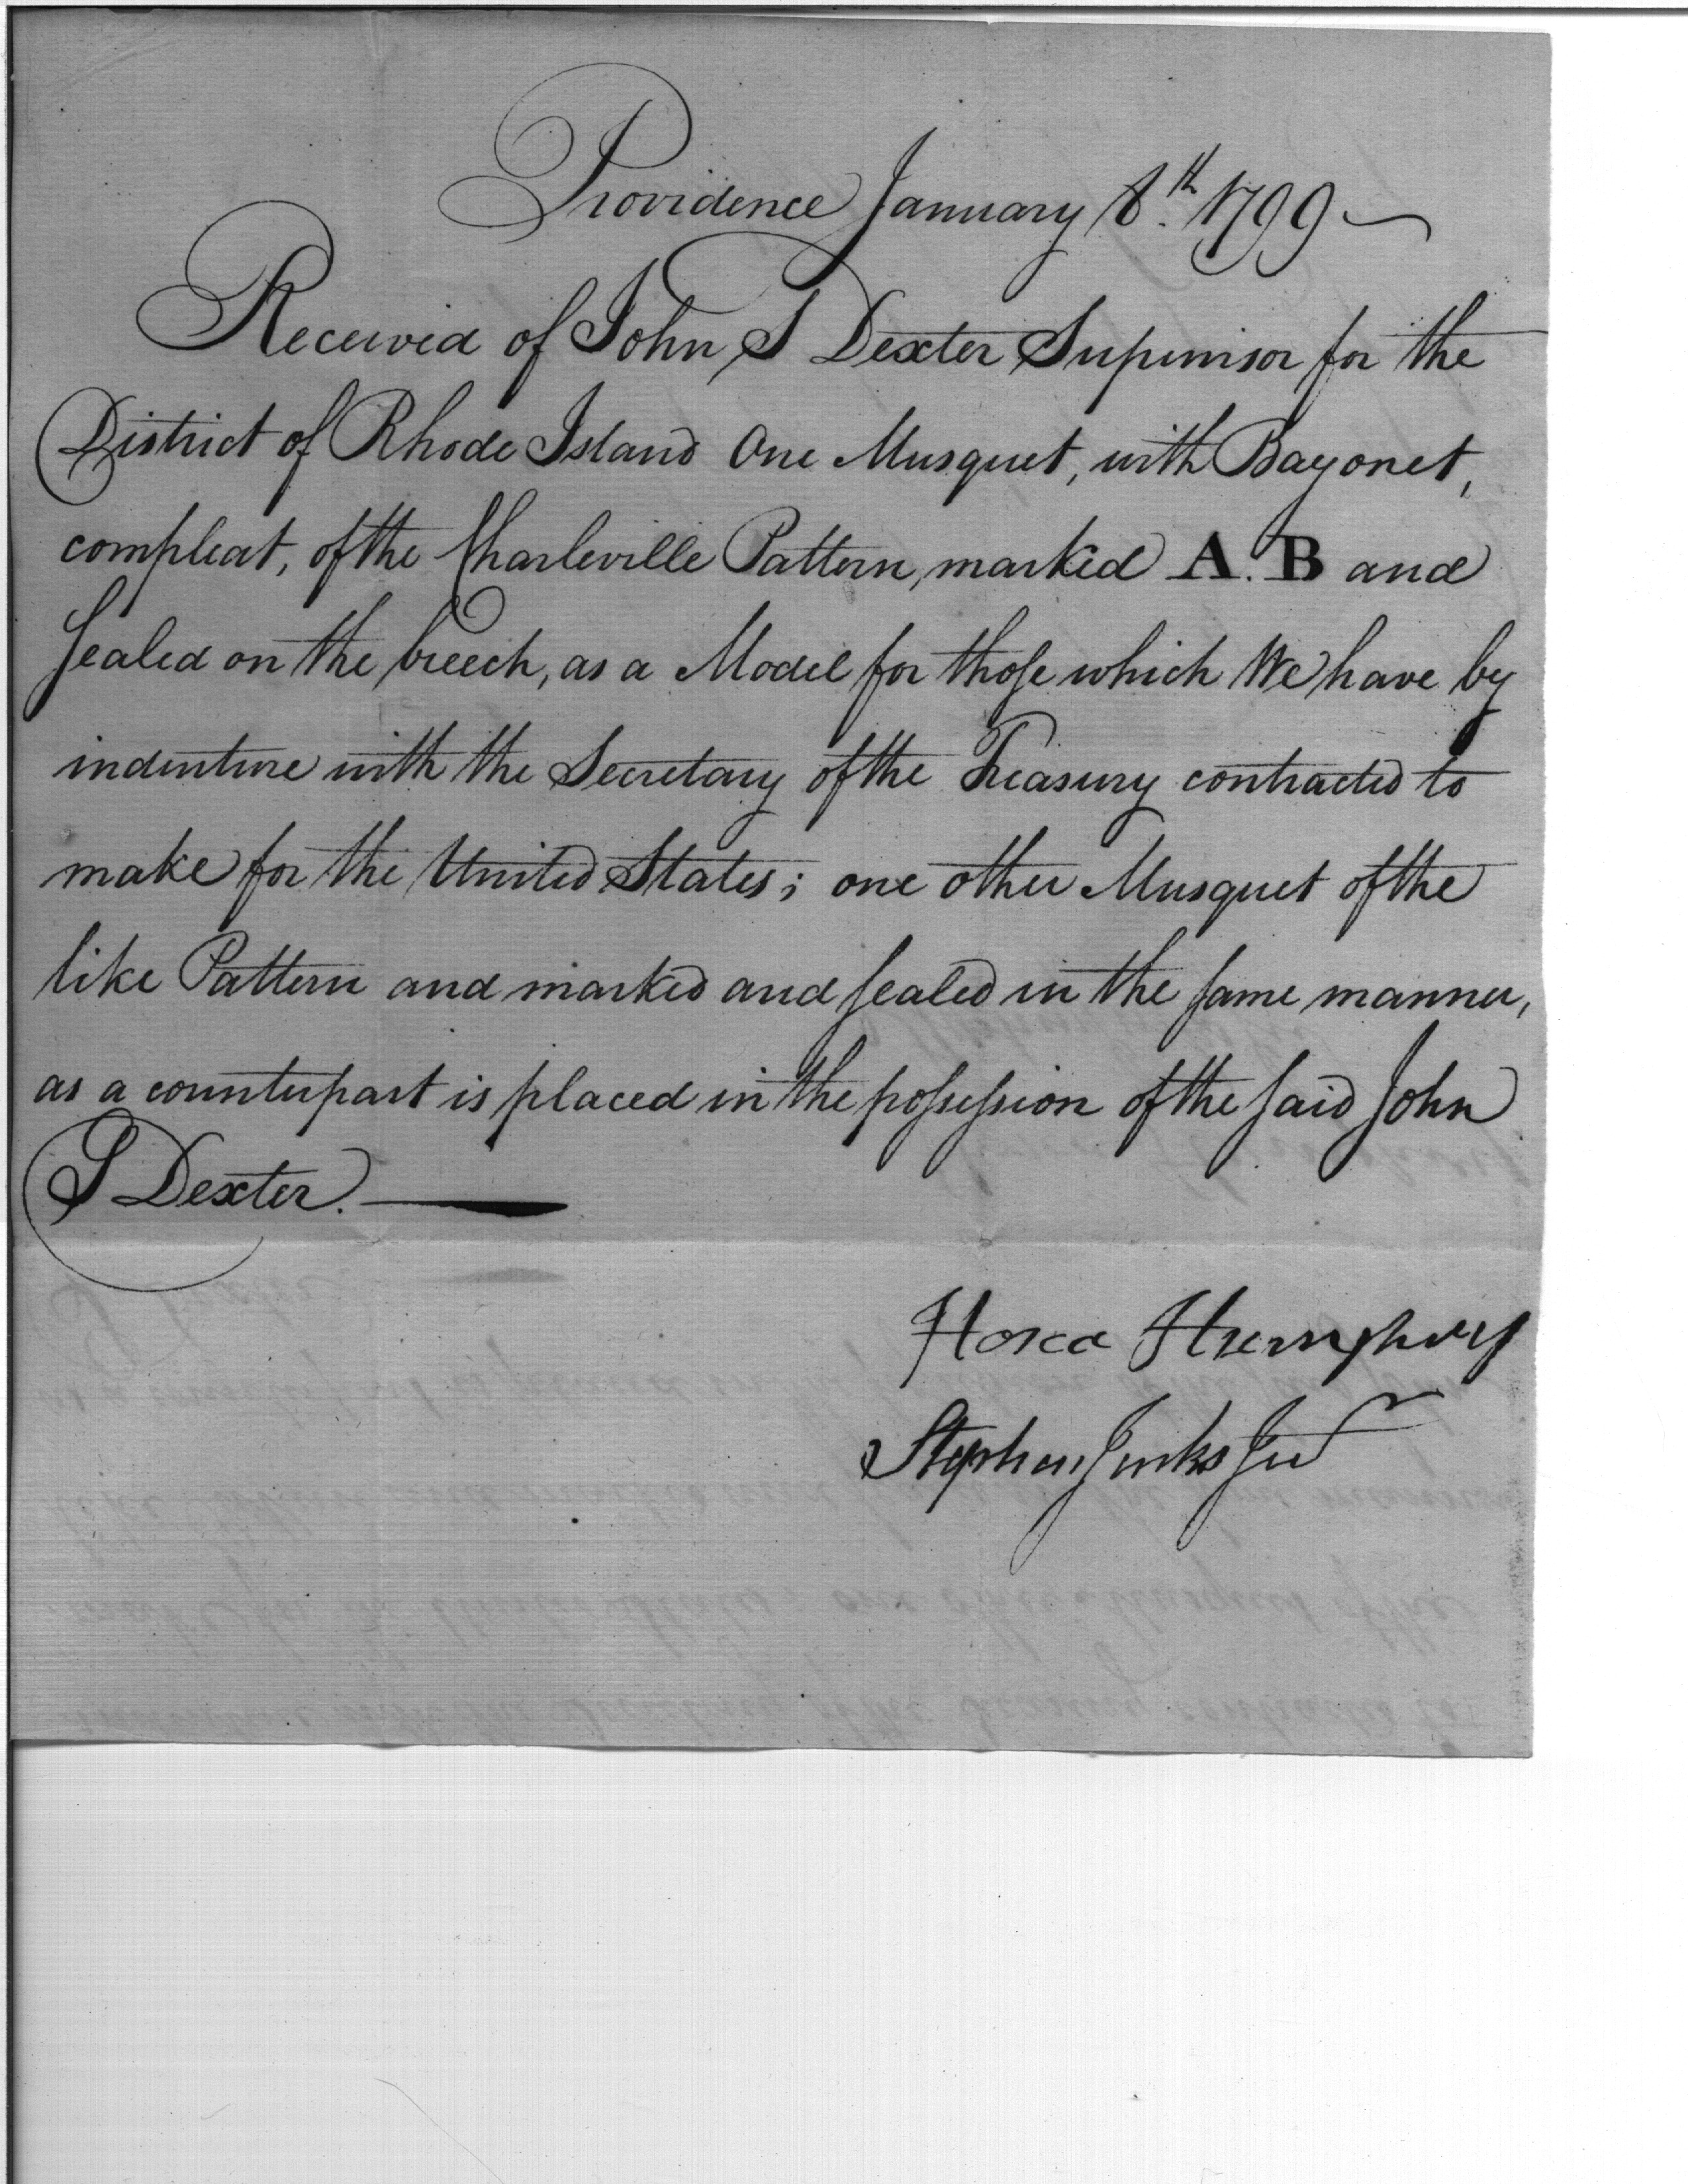 Providence January 8th. 1799
Received of John S Dexter Supervisor for the
District of Rhode Island One Musquet, with Bayonet,
compleat, of the Charleville Pattern, marked A. B and
sealed on the breech, as a Model for those which We have by
indenture with the Secretary of the Treasury contracted to
make for the United States; one other Musquet of the
like Pattern and marked and sealed in the same manner,
as a counterpart is placed in the possession of the said John
S Dexter.
Hosea Humphrey
Stephen Jenks Jur